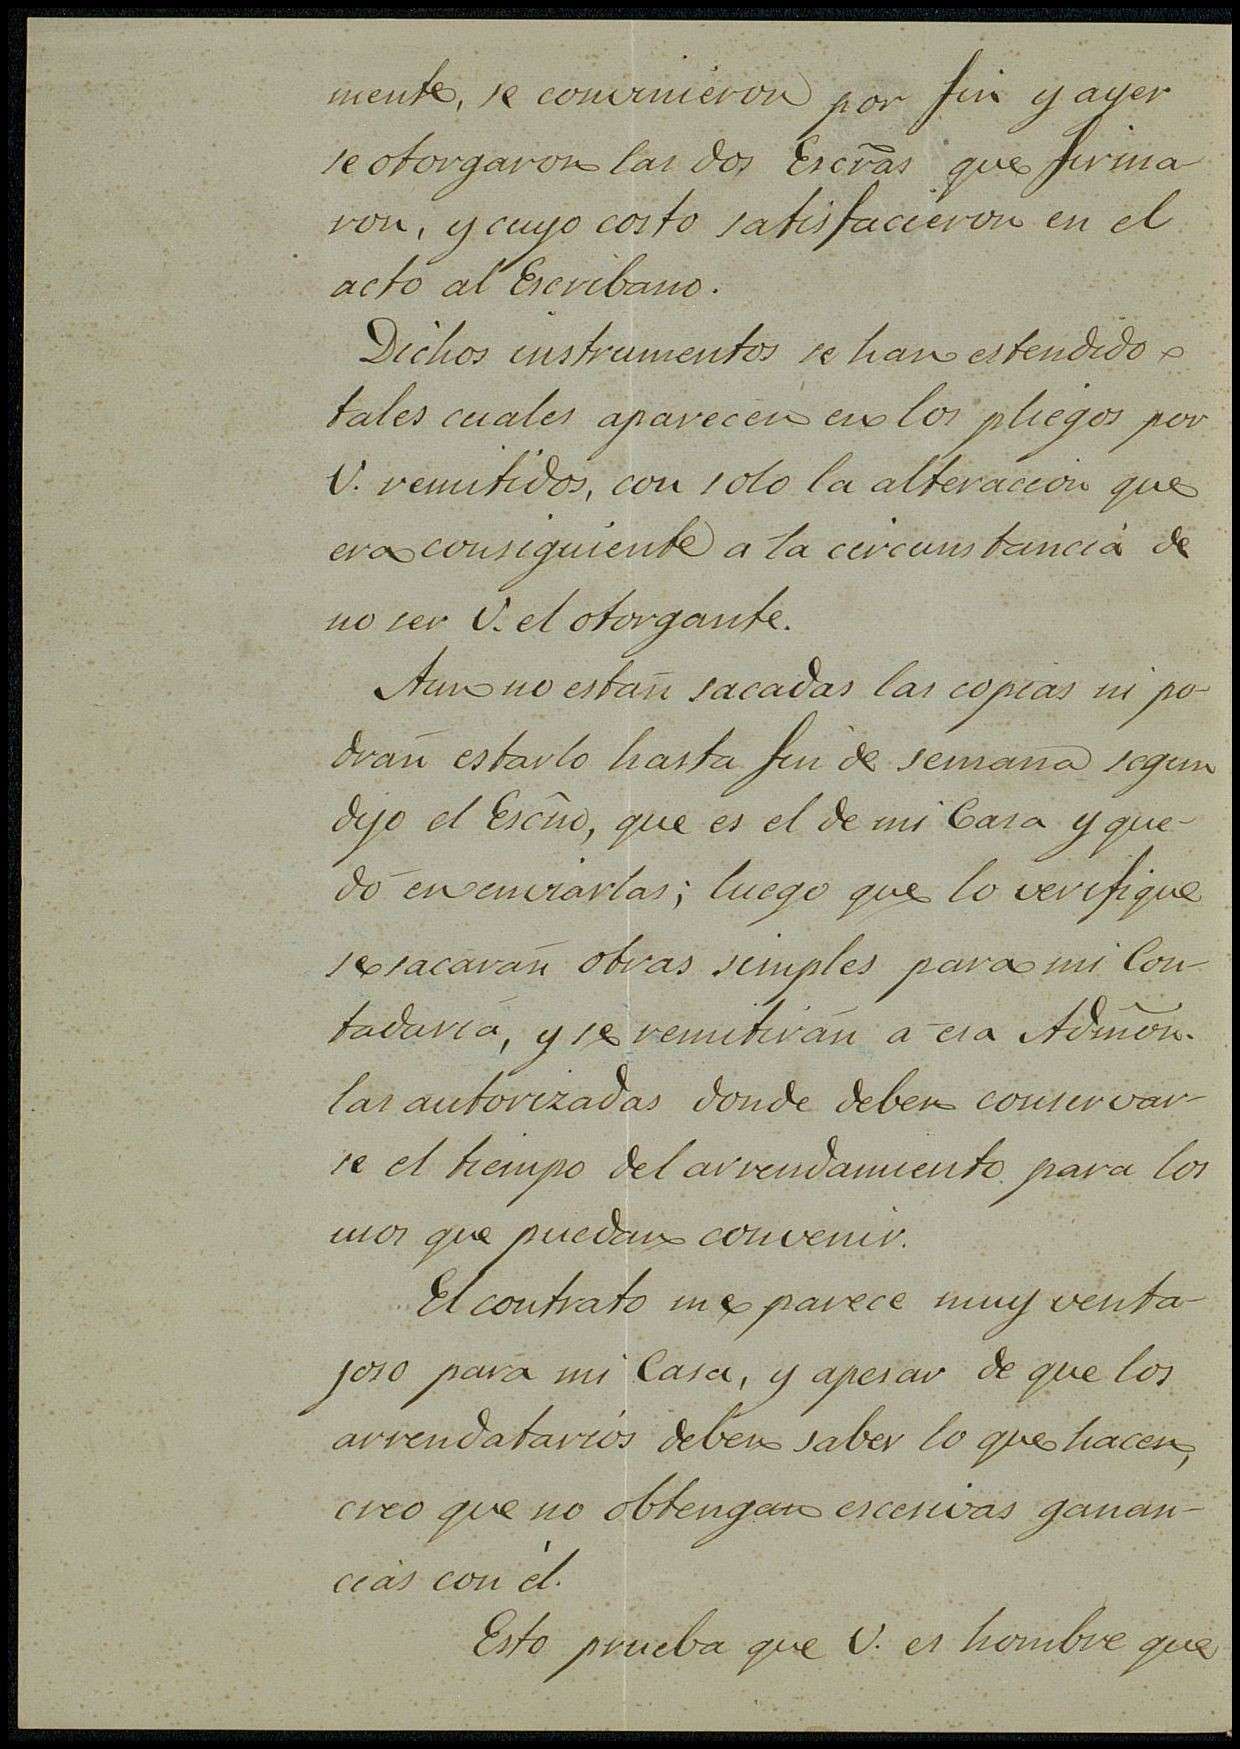 mente, se convinieron por fin y ayer
se otorgaron las dos Escrãs que firma-
ron, y cuyo costo satisfacieron en el
acto al Escribano.
Dichos instrumentos se han estendido
tales cuales aparecen en los pliegos por
V. remitidos, con solo la alteracion que
era consiguiente a la circunstancia de
no ser V. el otorgante.
Aun no están sacadas las copias ni po-
drán estarlo hasta fin de semana segun
dijo el Escño, que es el de mi Casa y que-
dó en enviarlas; luego que lo verifique
se sacarán otras simples para mi Con-
taduria, y se remitirán a esa Admõn.
las autorizadas donde deben conservar-
se el tiempo del arrendamiento para los
usos que puedan convenir.
El contrato me parece muy venta-
joso para mi Casa, y apesar de que los
arrendatarios deben saber lo que hacen,
creo que no obtengan escesivas ganan-
cias con él.
Esto prueba que V. es hombre que